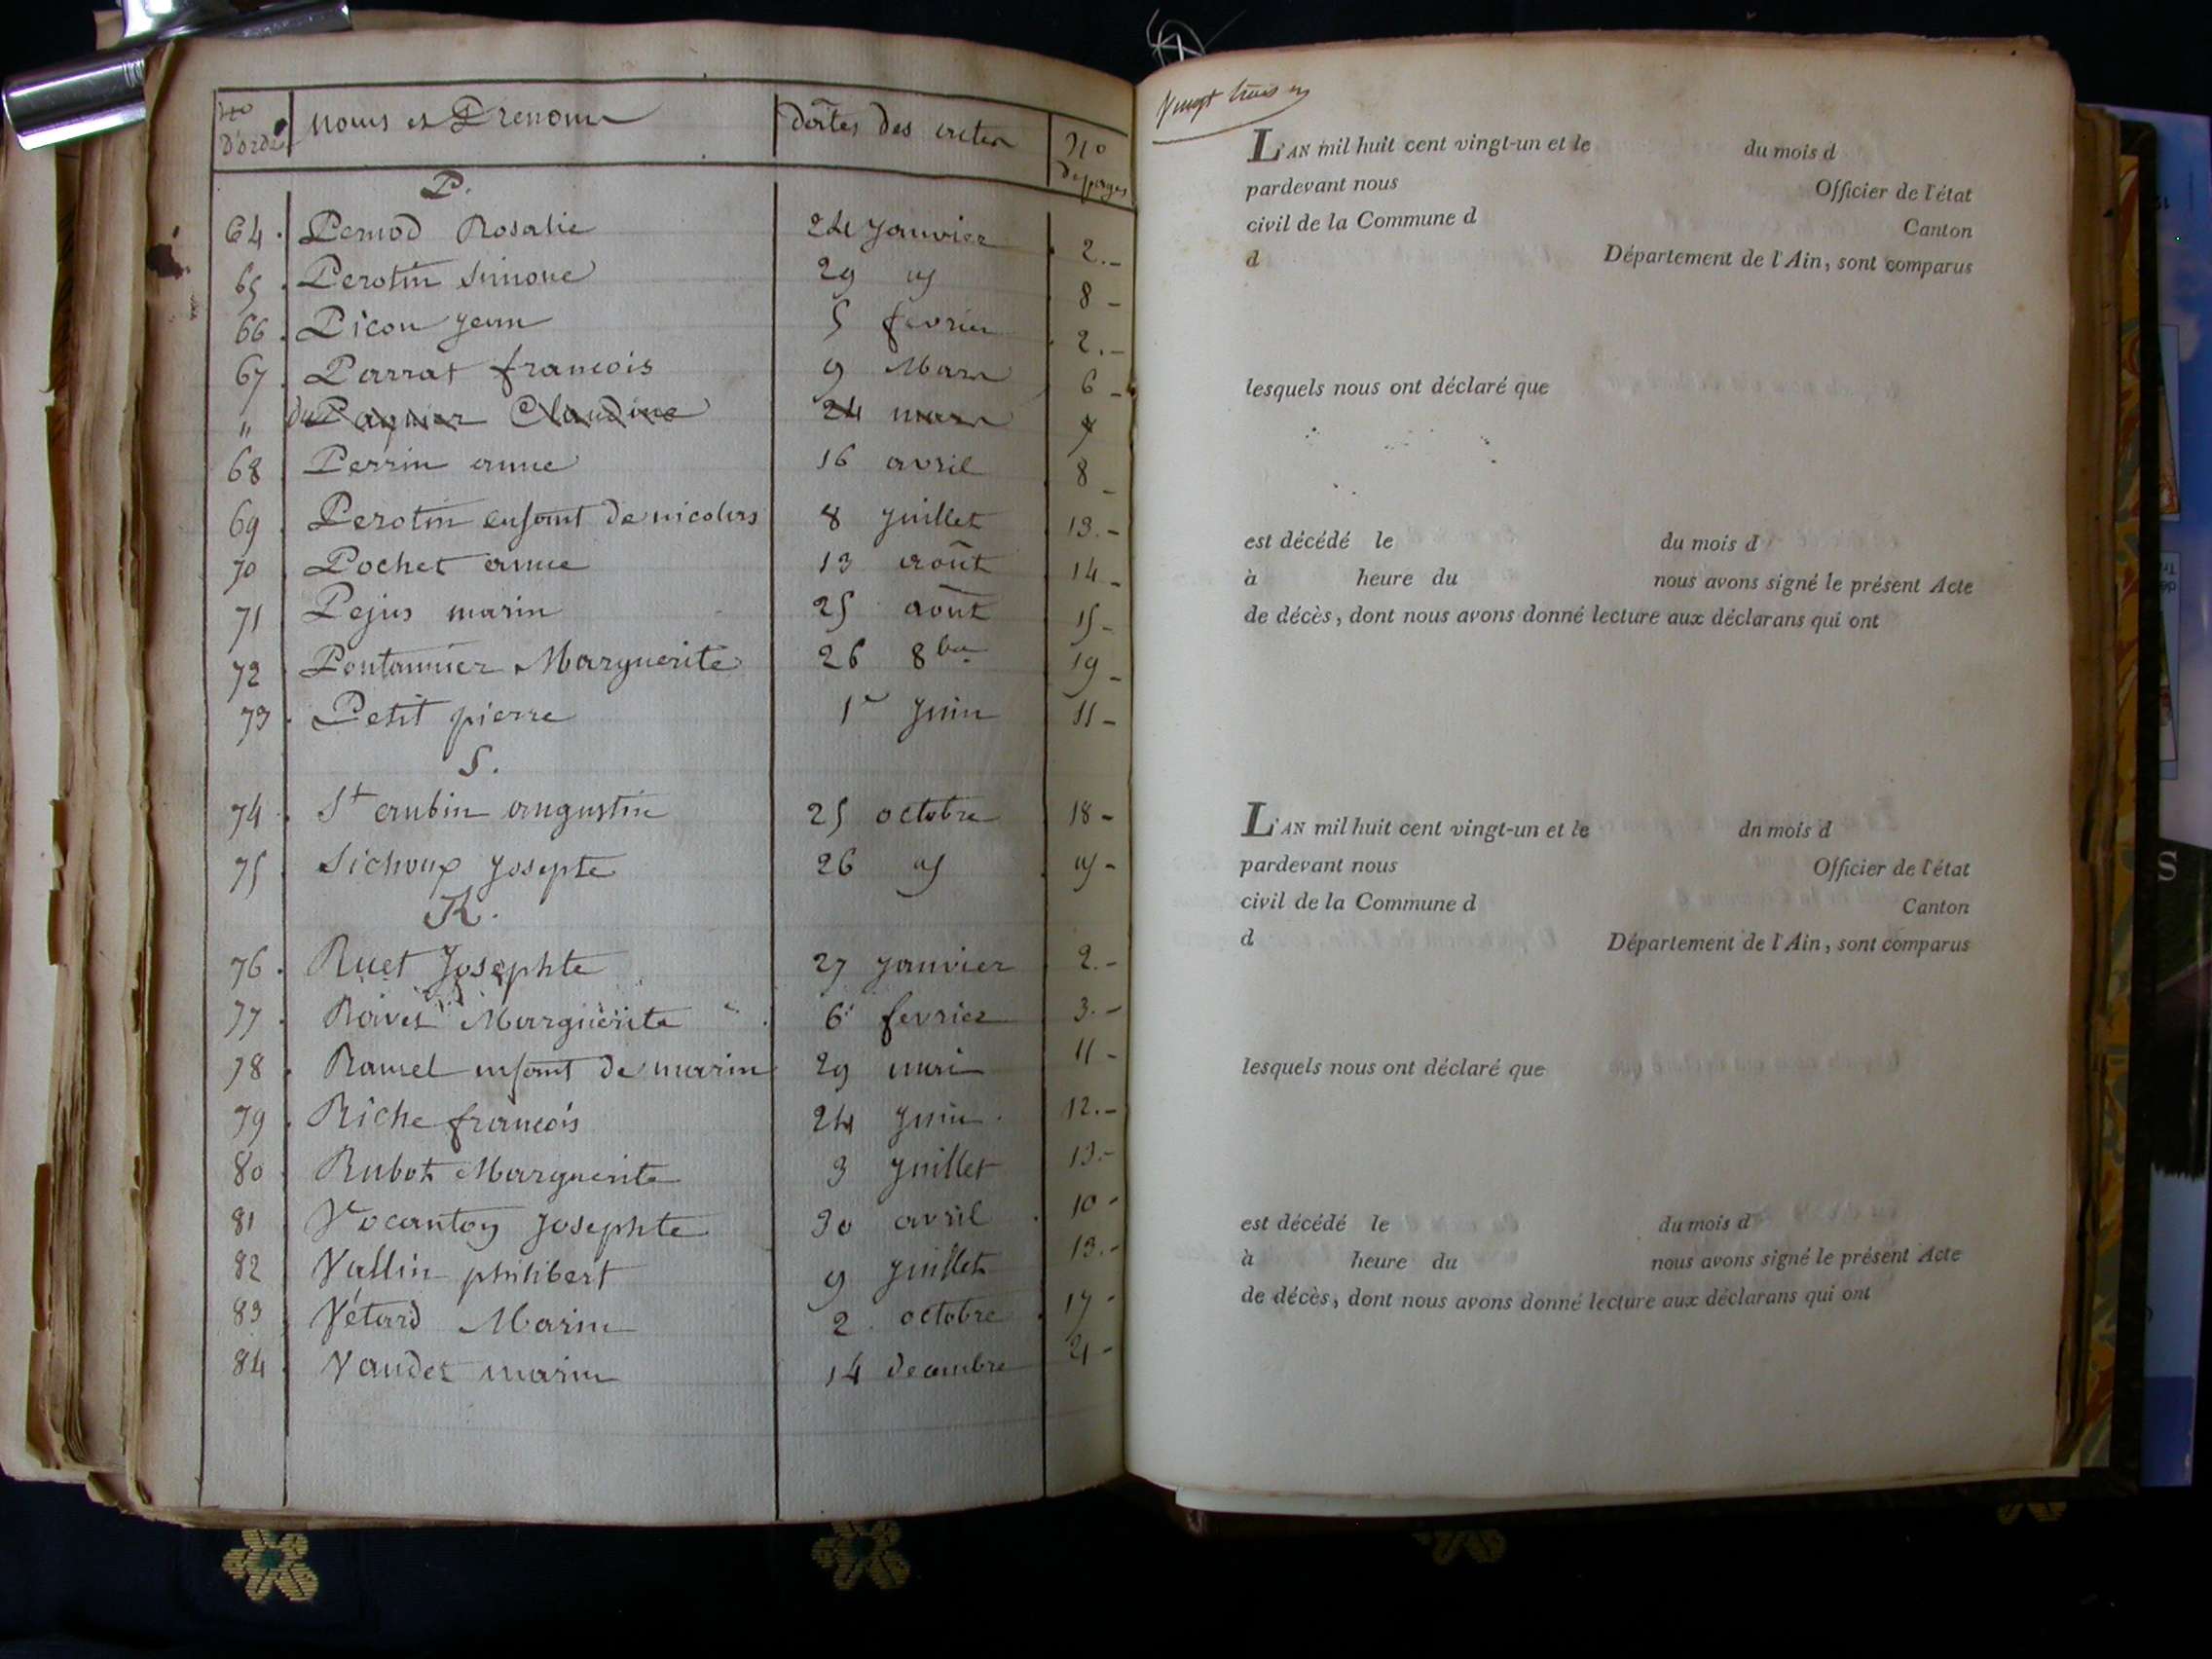 No d'ordre | noms et Prenoms | dates des actes | No de pages
P.
64. Pernod Rosalie 24 janvier 2.-
65. Perotin Simone 29 id 8-
66. Picon jean 5 fevrier 2.-
67. Parrat francois 9 Mars 6-
" du Pagnier Claudine 24 mars
68 Perrin anne 16 avril 8-
69. Perotin enfant de nicolas 8 juillet 13.-
70 Pochet anne 13 août 14-
71 Pejus marin 25 août 15-
72 Pontannier Marguerite 26 8bre 19-
73. Petit pierre 1r juin 11-
S.
74. St aubin augustin 25 octobre 18-
75. Sichoux josepte 26 id id-
R.
76. Ruet Josephte 27 janvier 2.-
77. Ravet Marguerite 6 fevrier 3.-
78. Ramel enfant de marin 29 mai 11-
79. Riche francois 24 juin 12.-
80. Rubot Marguerite 3 juillet 13.-
81. Vocanton josephte 30 avril 10-
82. Vallin philibert 9 juillet 13.-
83. Vétard Marin 2 octobre 17-
84. Vaudet marin 14 decembre 21-
Vingt trois
L'AN mil huit cent vingt-un et le du mois d
pardevant nous Officier de l'état
civil de la Commune d Canton
d Département de l'Ain, sont comparus
lesquels nous ont déclaré que
est décédé le du mois d
à heure du nous avons signé le présent Acte
de décès, dont nous avons donné lecture aux déclarans qui ont
L'AN mil huit cent vingt-un et le dn mois d
pardevant nous Officier de l'état
civil de la Commune d Canton
d Département de l'Ain, sont comparus
lesquels nous ont déclaré que
est décédé le du mois d
à heure du nous avons signé le présent Acte
de décès, dont nous avons donné lecture aux déclarans qui ont